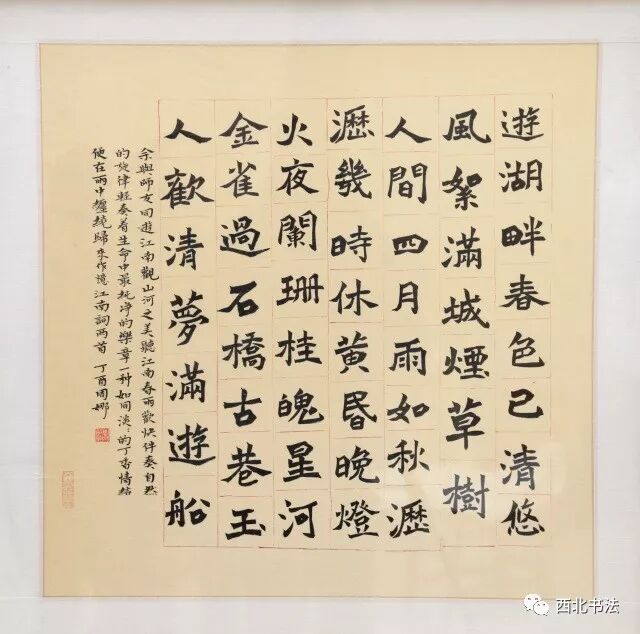 遊湖畔春色已清悠
風絮滿城煙草樹
人間四月雨如秋瀝
瀝幾時休黃昏晚燈
火夜闌珊桂魄星河
金雀過石橋古巷玉
人歡清夢滿遊船
余與師友同遊江南觀山河之美聽江南春雨歡快伴奏自然
的旋律輕奏着生命中最純淨的樂章一種如同淡〻的丁香情結
便在雨中纏繞歸來作憶江南詞兩首 丁酉周娜
西北书法